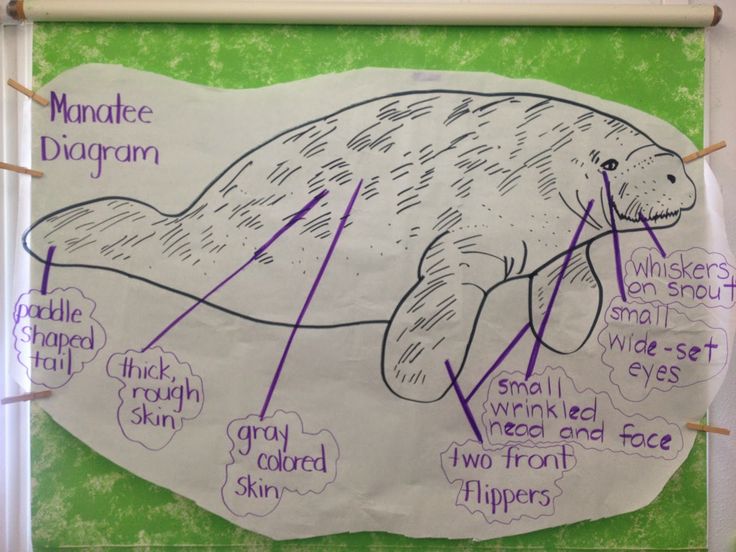 Manatee
Diagram
paddle
shaped
tail
thick,
rough
skin
gray
colored
skin
two front
flippers
small
wrinkled
head and face
small
wide-set
eyes
whiskers
on snout